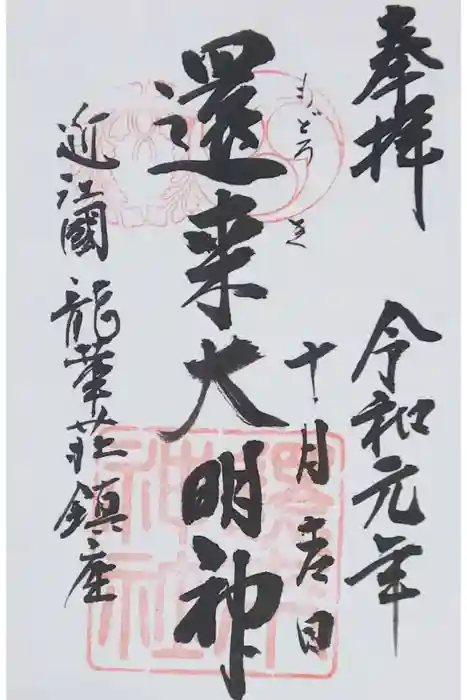 奉拝
令和元年
十月吉日
もどろき
還来大明神
近江國龍華荘鎮座
還来神社